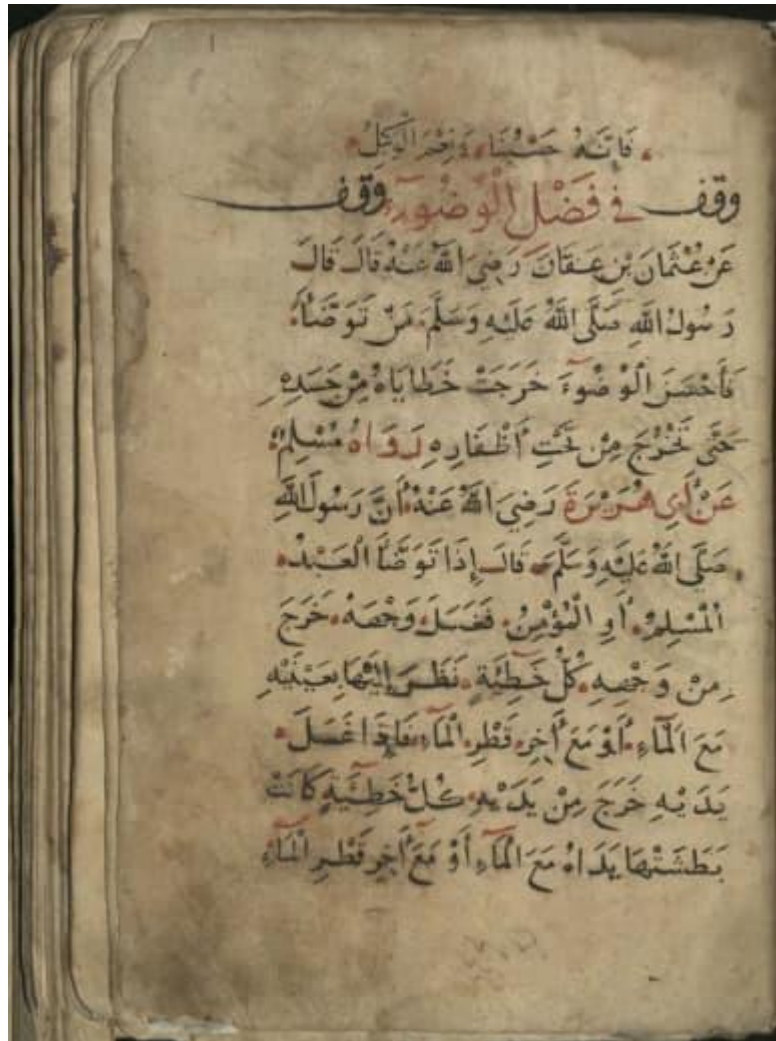 فَإِنَّهُ حَسْبُنَا وَنِعْمَ الْوَكِيلُ
وقف في فَضْلِ الْوُضُوءِ وقف
عَنْ عُثْمَانَ بْنِ عَفَّانَ رَضِيَ اللَّهُ عَنْهُ قَالَ قَالَ
رَسُولُ اللَّهِ صَلَّى اللَّهُ عَلَيْهِ وَسَلَّمَ مَنْ تَوَضَّأَ
فَأَحْسَنَ الْوُضُوءَ خَرَجَتْ خَطَايَاهُ مِنْ جَسَدِهِ
حَتَّى تَخْرُجَ مِنْ تَحْتِ أَظْفَارِهِ رَوَاهُ مُسْلِمٌ
عَنْ أَبِي هُرَيْرَةَ رَضِيَ اللَّهُ عَنْهُ أَنَّ رَسُولَ اللَّهِ
صَلَّى اللَّهُ عَلَيْهِ وَسَلَّمَ قَالَ إِذَا تَوَضَّأَ الْعَبْدُ
الْمُسْلِمُ أَوِ الْمُؤْمِنُ فَغَسَلَ وَجْهَهُ خَرَجَ
مِنْ وَجْهِهِ كُلُّ خَطِيئَةٍ نَظَرَ إِلَيْهَا بِعَيْنَيْهِ
مَعَ الْمَآءِ أَوْ مَعَ أَخِرِ قَطْرِ الْمَآءِ فَإِذَا غَسَلَ
يَدَيْهِ خَرَجَ مِنْ يَدَيْهِ كُلُّ خَطِيئَةٍ كَانَتْ
بَطَشَتْهَا يَدَاهُ مَعَ الْمَآءِ أَوْ مَعَ أَخِرِ قَطْرِ الْمَآءِ